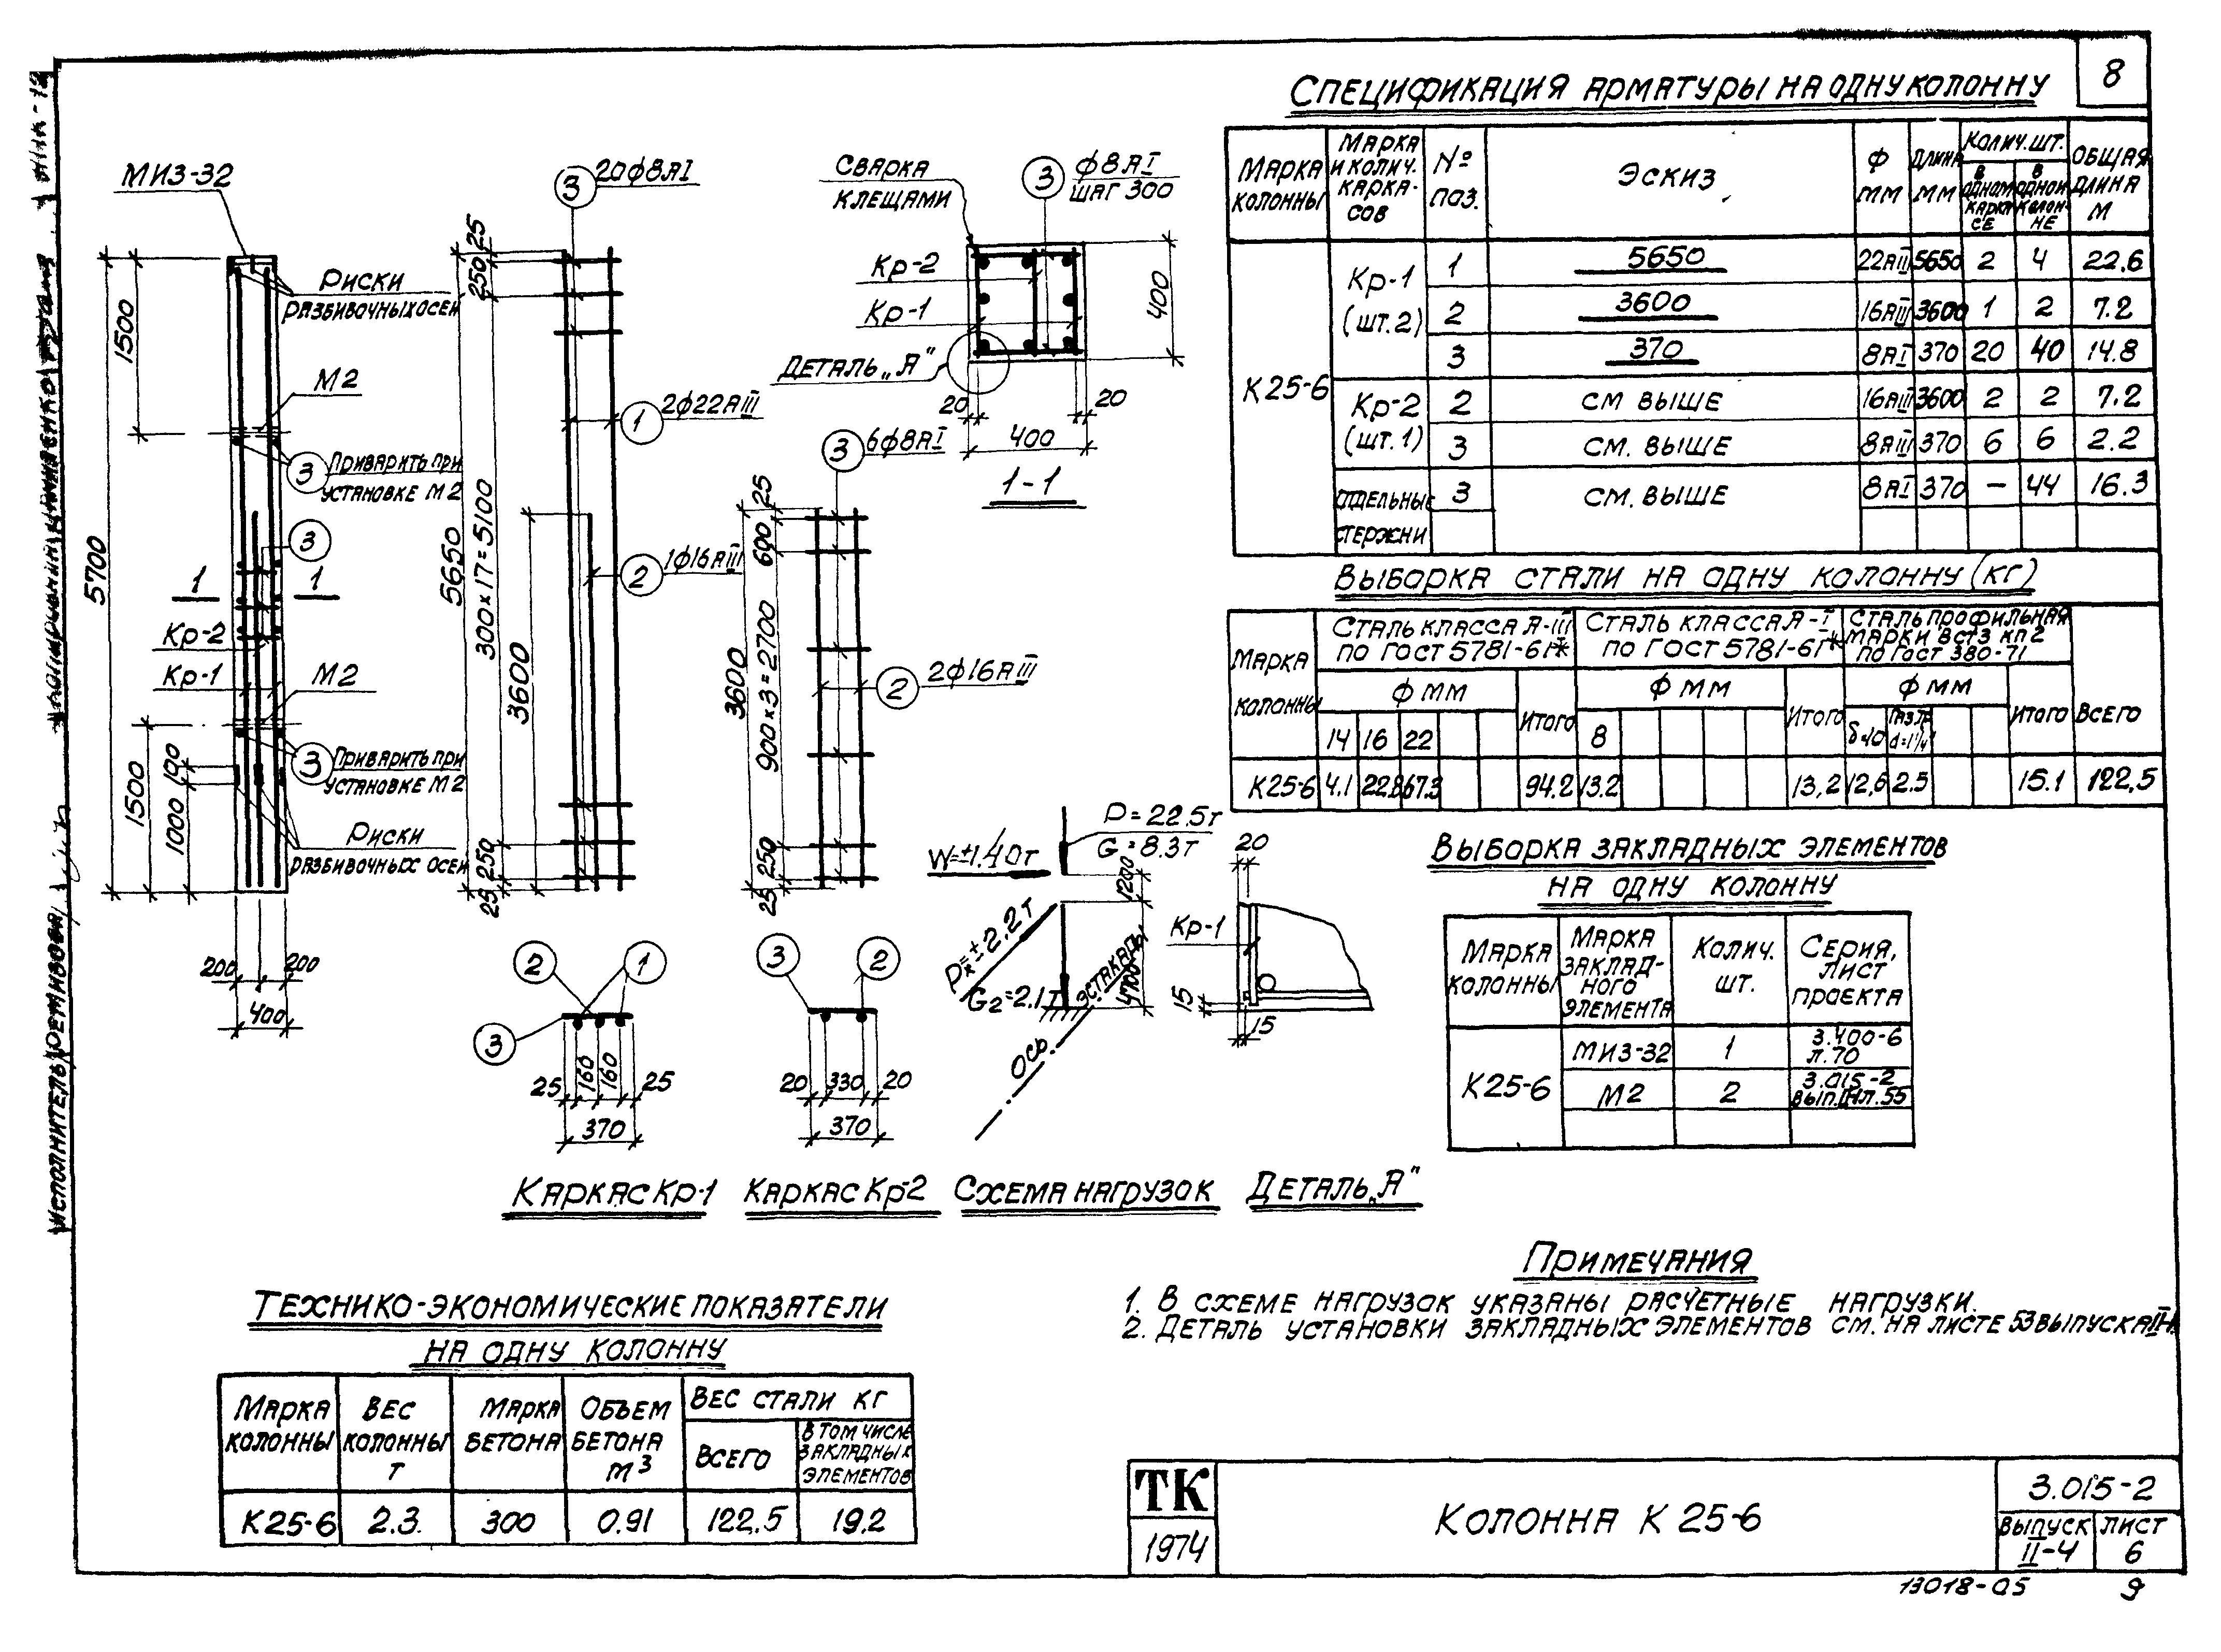 8
Спецификация арматуры на одну колонну
Марка колонны
Марка и колич. каркасов
№ поз.
Эскиз
Ф мм
Длина мм
Колич. шт.
в одном каркасе
в одной колонне
Общая длина м
К25-6
Кр-1 (шт.2)
1 5650 22АIII 5650 2 4 22.6
2 3600 16АIII 3600 1 2 7.2
3 370 8АI 370 20 40 14.8
Кр-2 (шт.1)
2 см выше 16АIII 3600 2 2 7.2
3 см. выше 8АIII 370 6 6 2.2
отдельные стержни
3 см. выше 8АI 370 – 44 16.3
Выборка стали на одну колонну (кг)
Марка колонны
Сталь класса А-III
по ГОСТ 5781-61*
Сталь класса А-I
по ГОСТ 5781-61*
Сталь профильная
марки Вст3 кп2
по ГОСТ 380-71
Ф мм
Итого
Ф мм
Итого
Ф мм
Итого
Всего
14 16 22
8
δ=10
d=1¼"
К25-6 4.1 22.8 67.3 94.2 13.2 13,2 12,6 2.5 15.1 122,5
Выборка закладных элементов
на одну колонну
Марка колонны
Марка закладного элемента
Колич. шт.
Серия, лист проекта
К25-6
МИЗ-32 1 3.400-6 л.70
М2 2 3.015-2
МИЗ-32
Риски
разбивочных осей
М2
3
Приварить при
установке М2
3
1 1
Кр-2
Кр-1
М2
3
Приварить при
установке М2
Риски
разбивочных осей
5700
1500
1500
1000
190
200 200
400
3 20ф8АI
25
250
5650
300×17=5100
3600
1 2ф22АIII
2 1ф16АIII
250
25
2 1
3
25 160 160 25
370
Каркас Кр-1
3 6ф8АI
25
600
3600
900×3=2700
2 2ф16АIII
250
25
3 2
20 330 20
370
Каркас Кр-2
Сварка
клещами
3 ф8АI
шаг 300
Кр-2
Кр-1
Деталь „А"
400
20 20
400
1-1
P=22.5т
G=8.3т
W=±1.40т
1200
Pк=±2.2т
G2=2.1т
эстакады
4700
Ось
Схема нагрузок
20
Кр-1
15
15
Деталь „А"
Примечания
1. В схеме нагрузок указаны расчетные нагрузки.
2. Деталь установки закладных элементов см. на листе 53 выпуска II-1.
Технико-экономические показатели
на одну колонну
Марка колонны
Вес колонны т
Марка бетона
Объем бетона м³
Вес стали кг
Всего
в том числе закладных элементов
К25-6 2.3. 300 0.91 122,5 19.2
ТК
1974
Колонна К 25-6
3.015-2
Выпуск II-4
Лист 6
13018-05
9
исполнитель